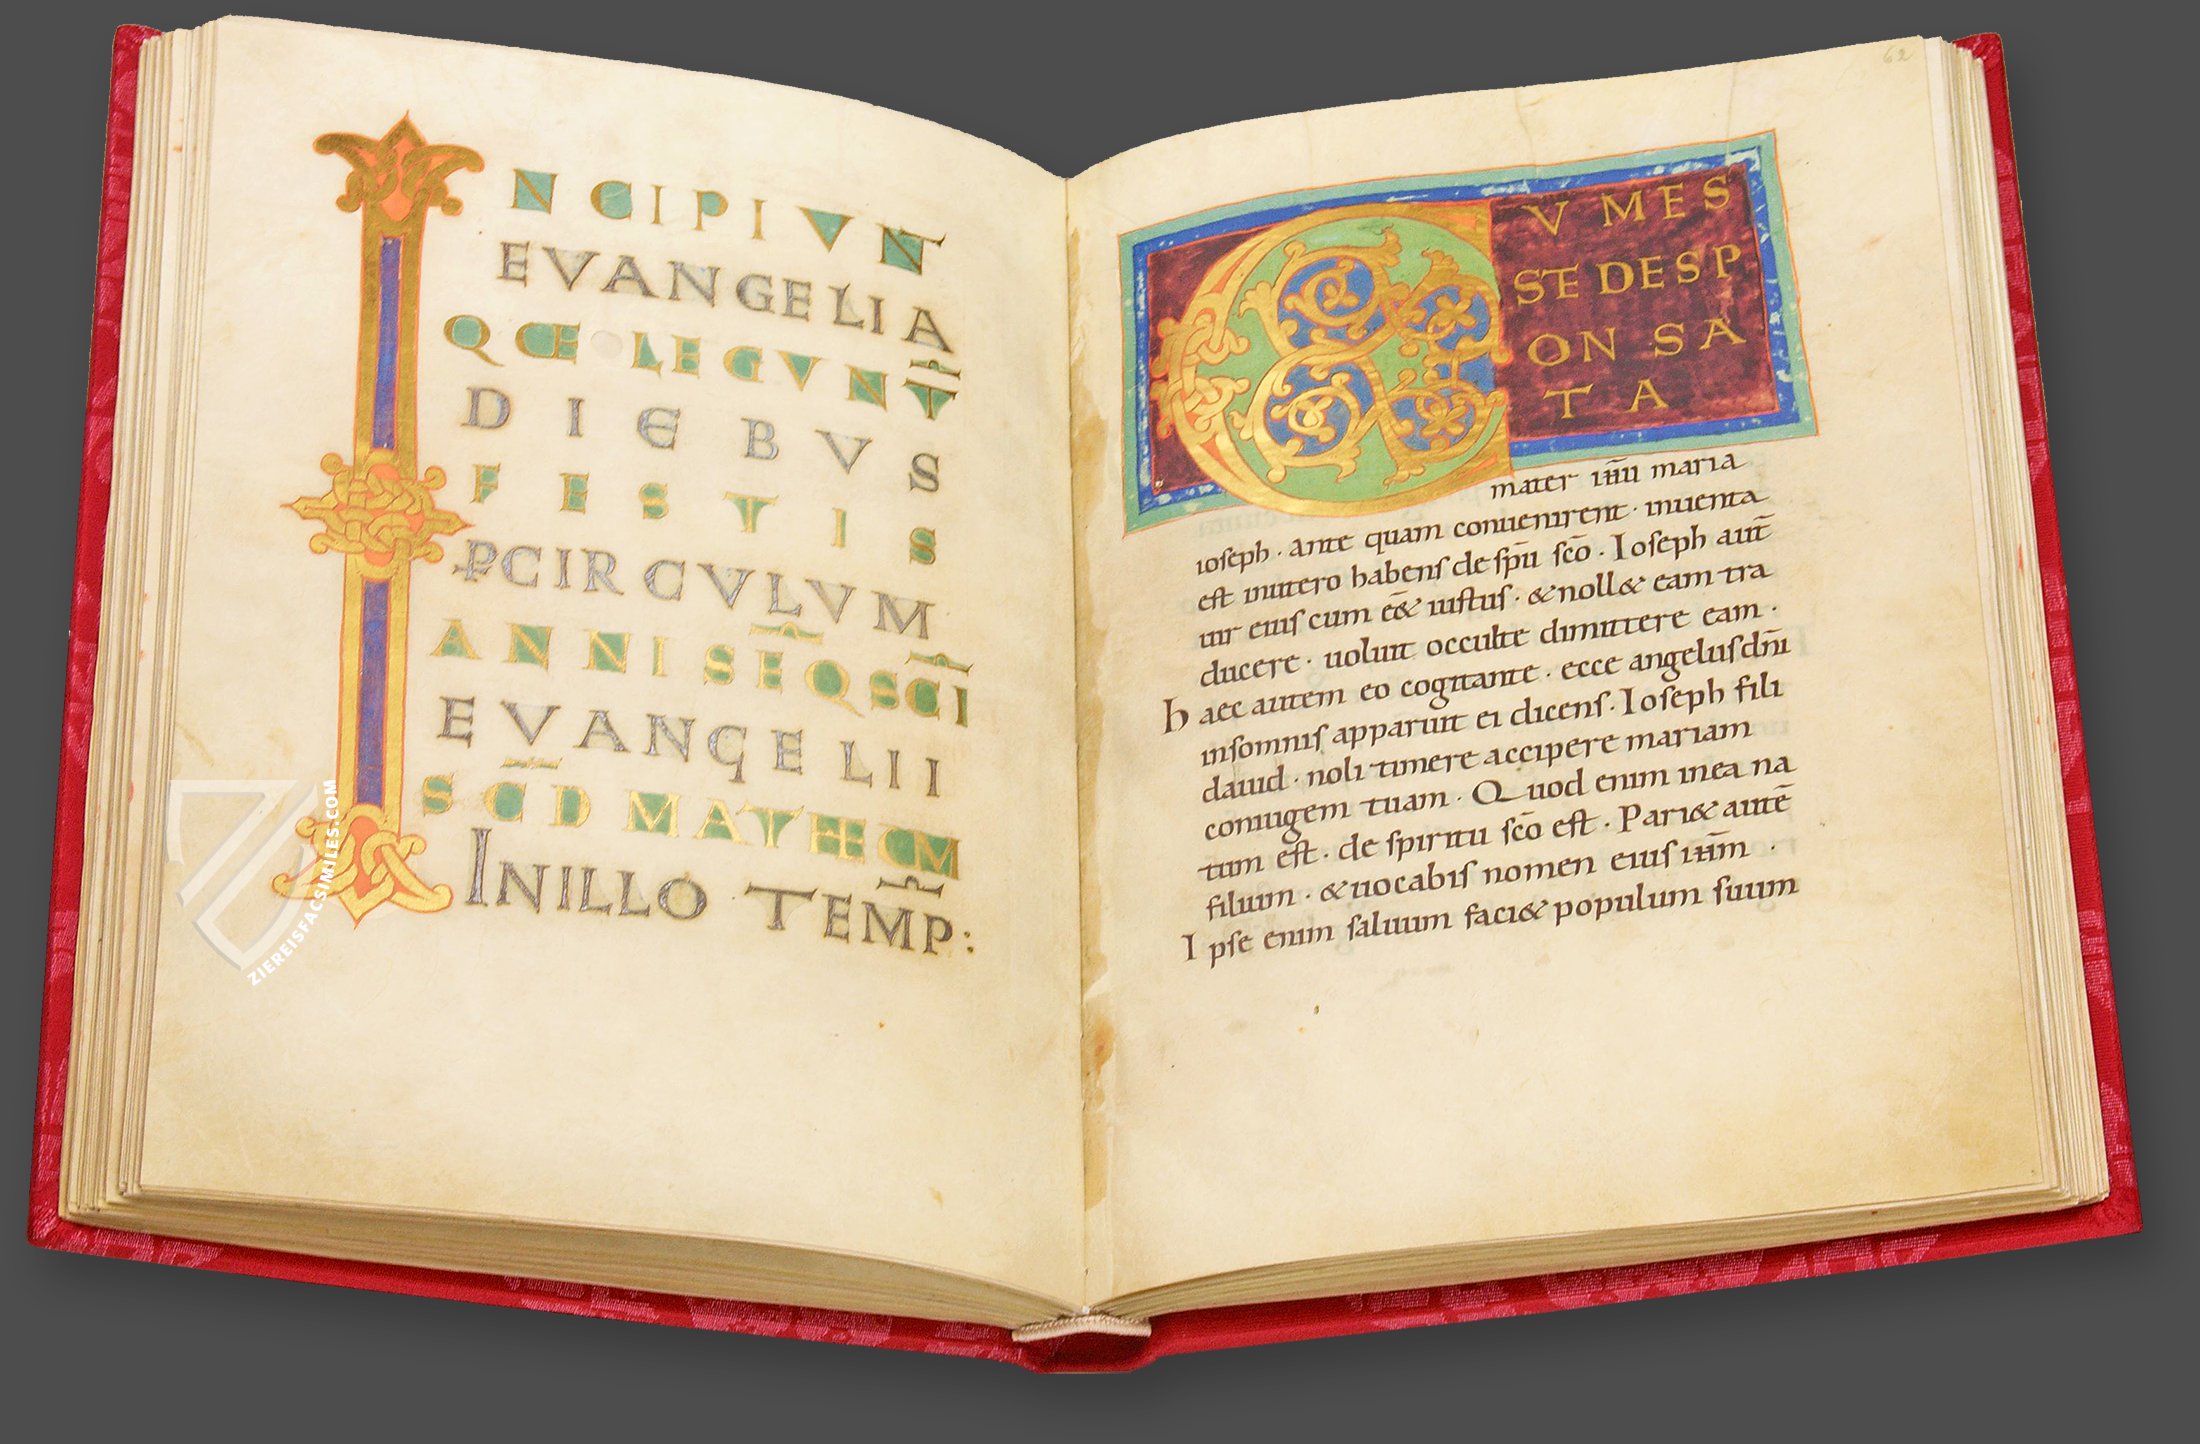 INCIPIUNT
EVANGELIA
QUE LEGUNT̄
DIEBVS
FESTIS
ꝐCIRCVLVM
ANNI SEQ̄ SC̄I
EVANGELII
SC̄D MATHEŪM
IN ILLO TEMP̄:
ZIEREISFACSIMILES.COM
62
CVM ES
SE DESP
ON SA
TA
mater ih̄u maria
ioseph · Ante quam conuenirent · inuenta
est inutero habens de sp̄u sc̄o · Ioseph aut̄
uir eius cum eē& iustus · & noll& eam tra
ducere · uoluit occulte dimittere eam ·
haec autem eo cogitante · ecce angelus dn̄i
insomnis apparuit ei dicens · Ioseph fili
dauid · noli timere accipere mariam
coniugem tuam · Quod enim inea na
tum est · de spiritu sc̄o est · Pari& autē
filium · & uocabis nomen eius ih̄m ·
Ipse enim saluum faci& populum suum